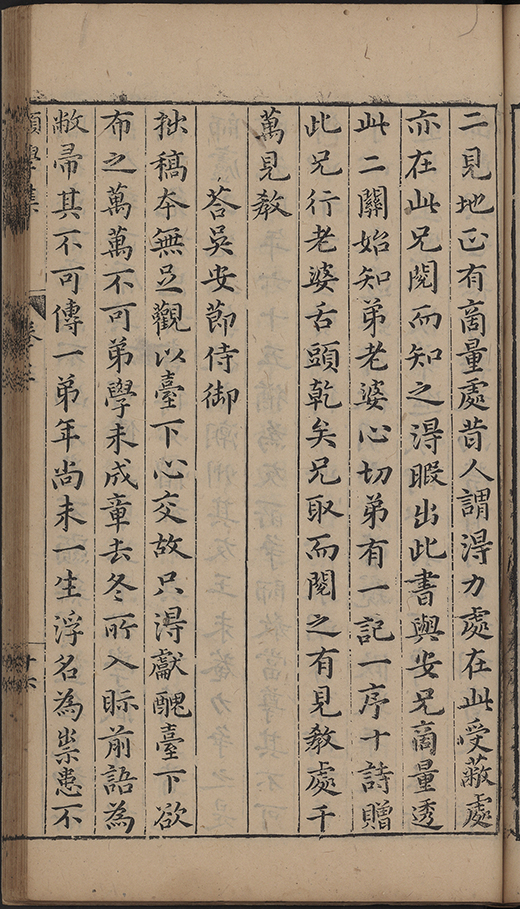 二見地正有商量處昔人謂得力處在此受蔽處
亦在此兄閱而知之得暇出此書與安兄商量透
此二關始知弟老婆心切弟有一記一序十詩贈
此兄行老婆舌頭乾矣兄取而閱之有見教處千
萬見教
荅吳安節侍御
拙稿本無足觀以臺下心交故只得獻醜臺下欲
布之萬萬不可弟學未成章去冬所入眎前語為
敝帚其不可傳一弟年尚未一生浮名為祟患不
願學集
卷之三
十六